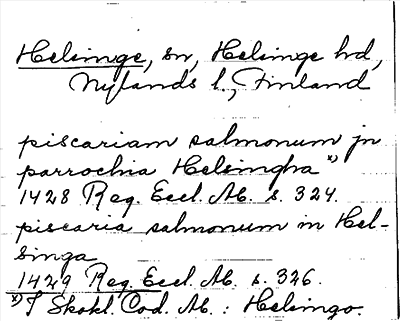 Helsinge, sn, Helsinge hd,
Nylands l., Finland
piscariam salmonum jn
parrochia Helsingha x)
1428 Reg. Eccl. Ab. s. 324.
piscaria salmonum in Hel-
singa
1429 Reg. Eccl. Ab. s. 326.
x) I Skokl. Cod. Ab.: Helsingo.